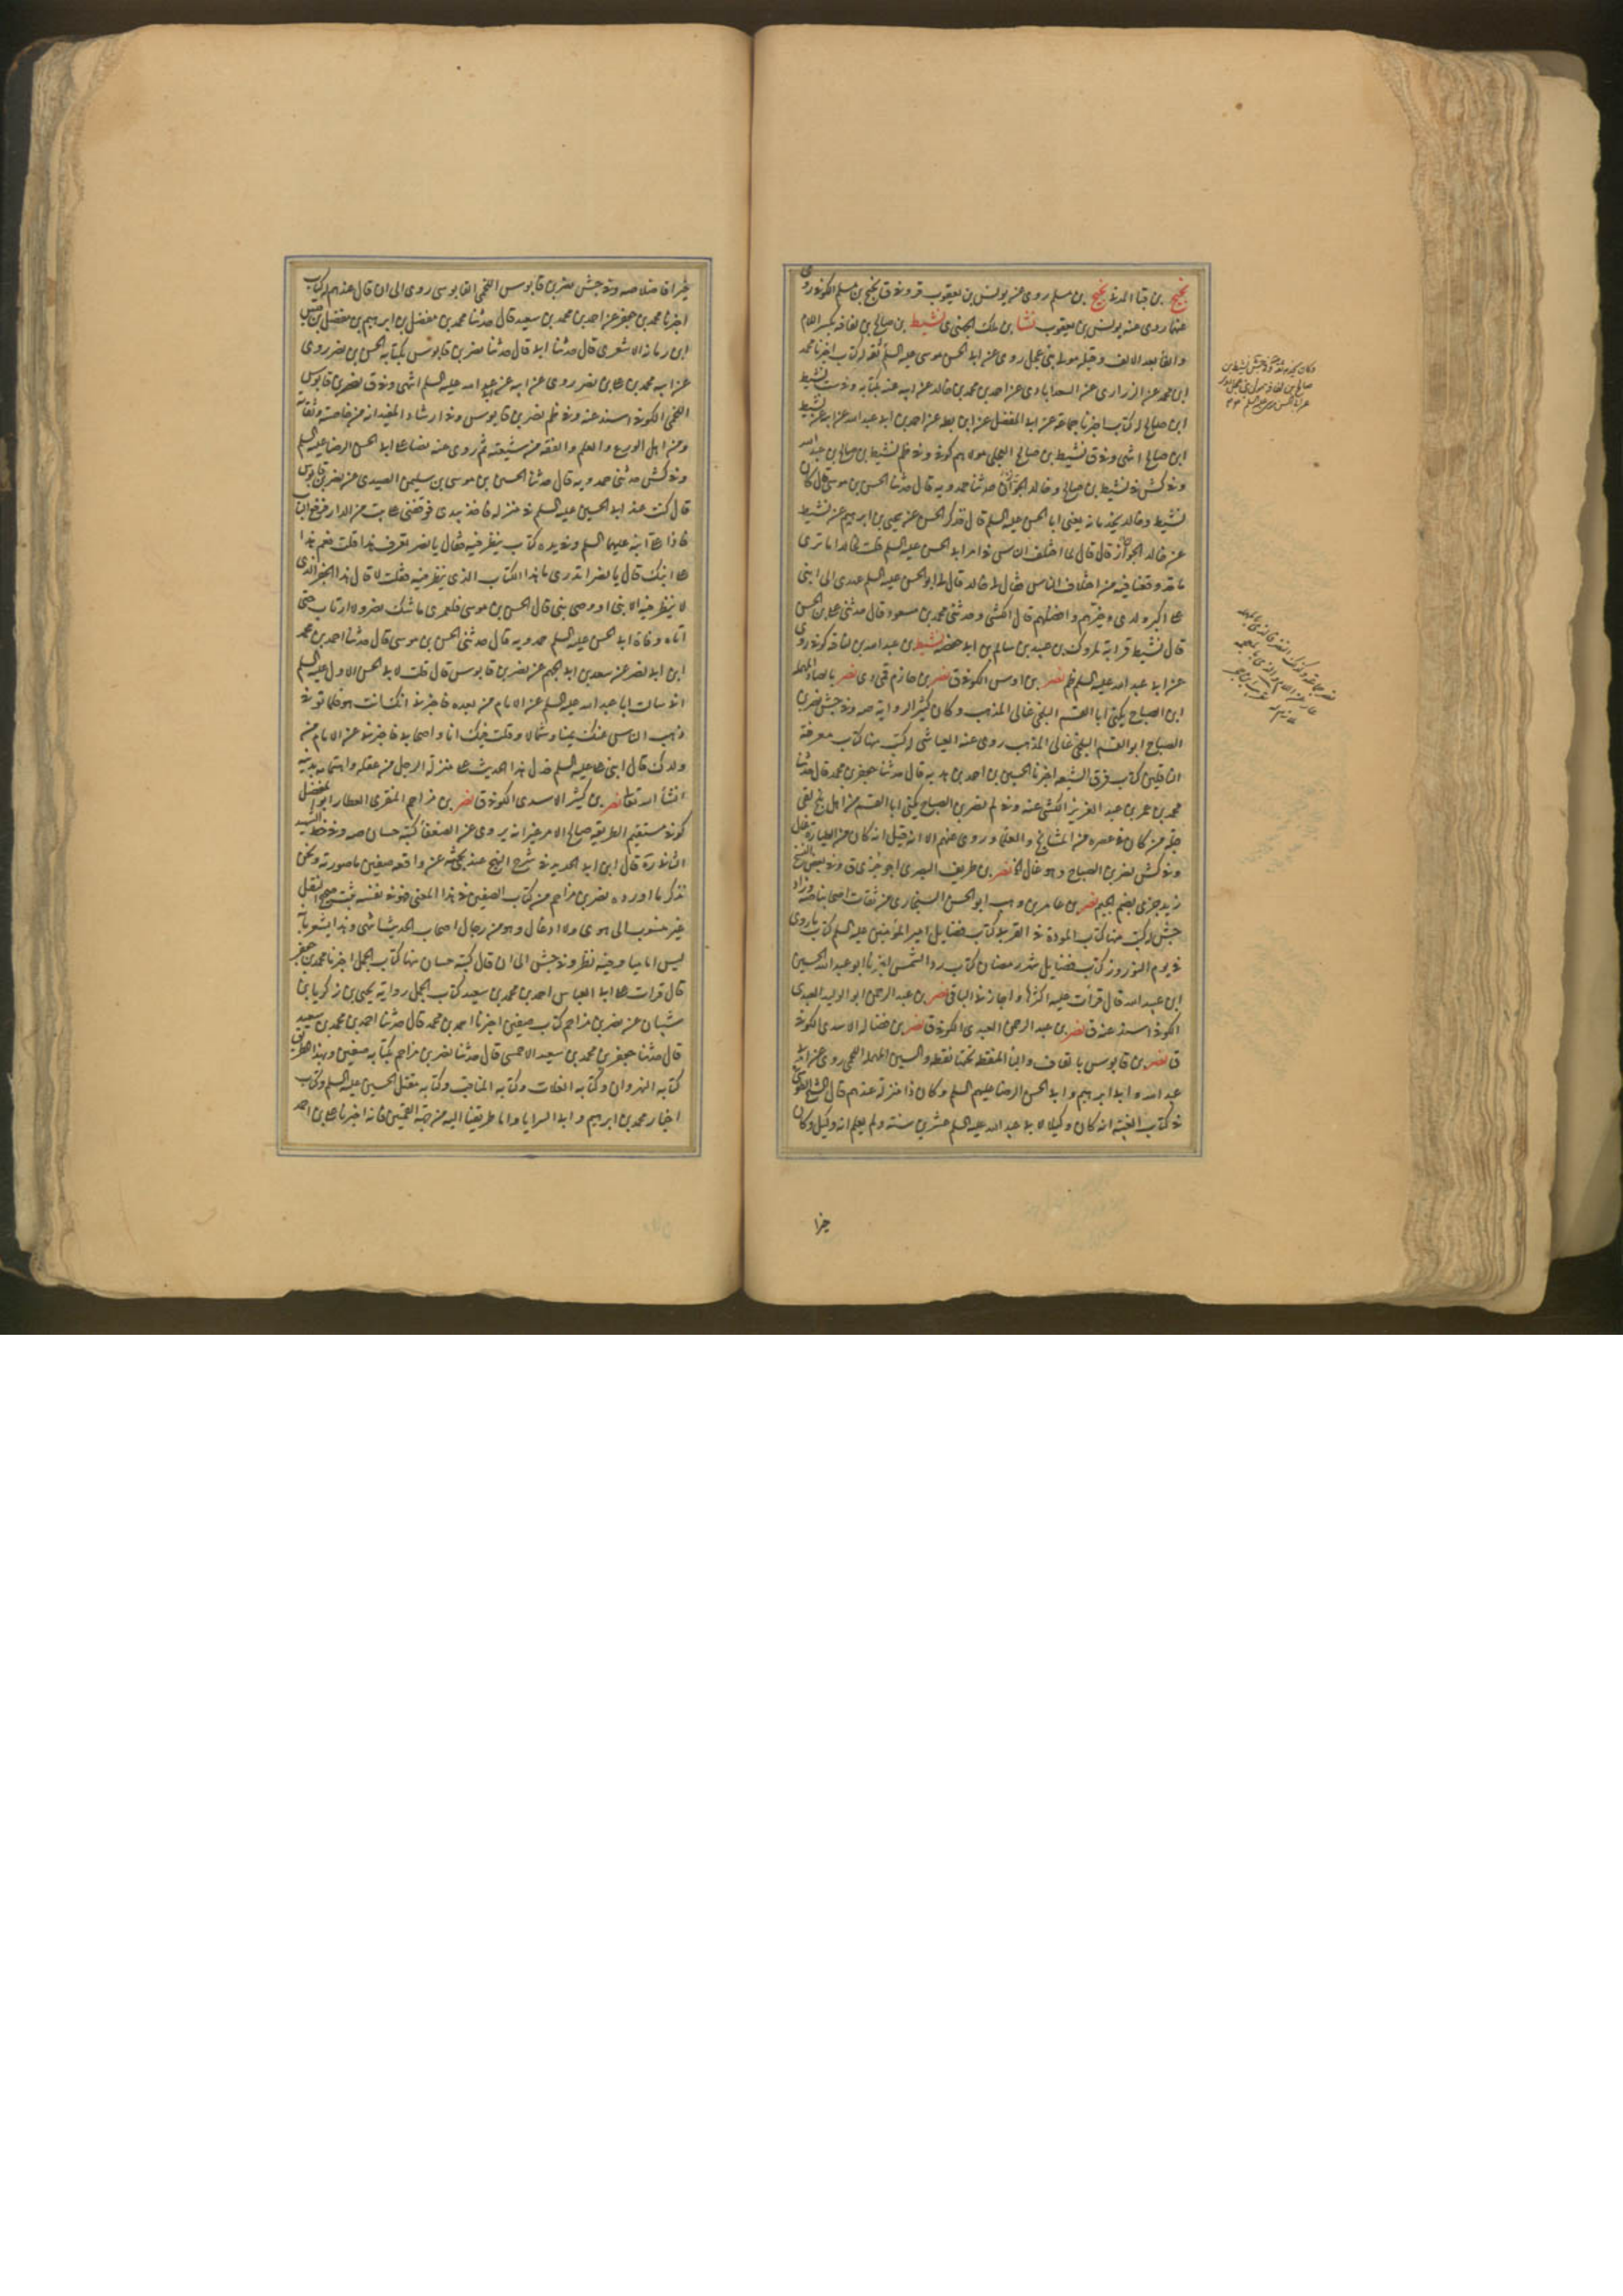 نجيح بن قبا المدنى نجيح بن مسلم روى عنه يونس بن يعقوب قر وفى ق نجيح بن مسلم الكوفى روى
عنهما روى عنه يونس بن يعقوب نشا بن ملك الجهنى ى نشيط بن صالح بن لفافه بكسر اللام
والفا بعد الالف وقيله مولى بنى عجل روى عن ابى الحسن موسى عليه السلم ثقه له كتاب اخبرنا محمد
ابن محمد عن الزرارى عن السعدابادى عن احمد بن محمد بن خالد عن ابيه عنه بكتابه وفى ست نشيط
ابن صالح له كتاب اخبرنا جماعة عن ابى المفضل عن ابن بطه عن احمد بن ابى عبد الله عن ابيه عن نشيط
ابن صالح انتهى وفى ق نشيط بن صالح العجلى مولاهم كوفى وفى ظم نشيط بن صالح بن عبد الله
وفى كش فى نشيط بن صالح وخالد الجواز حدثنا حمدويه قال حدثنا الحسن بن موسى قال كان
نشيط وخالد يخدمانه يعنى ابا الحسن عليه السلم قال فذكر الحسن عن يحيى بن ابرهيم عن نشيط
عن خالد الجواز قال قال لما اختلف الناس فى امر ابى الحسن عليه السلم قلت لخالد اما ترى
ما قد وقعنا فيه من اختلاف الناس فقال لى خالد قال لى ابو الحسن عليه السلم عهدى الى ابنى
على اكبر ولدى وخيرهم وافضلهم قال الكشى وحدثنى محمد بن مسعود قال حدثنى على بن الحسن
قال نشيط قرابة لمروك بن عبيد بن سالم بن ابى حفصه نشيط بن عبد الله بن كوفى روى
عن ابى عبد الله عليه السلم ظم نصر بن اوس الكوفى ق نصر بن حازم قى دى نصر بالصاد المهملة
ابن الصباح يكنى ابا القسم البلخى غالى المذهب وكان كثير الرواية صه وفى جش نصر بن
الصباح ابو القسم البلخى غالى المذهب روى عنه العياشى له كتب منها كتاب معرفة
الناقلين كتاب فرق الشيعه اخبرنا الحسين بن احمد بن هديه قال حدثنا جعفر بن محمد قال حدثنا
محمد بن عمر بن عبد العزيز الكشى عنه وفى لم نصر بن الصباح يكنى ابا القسم من اهل بلخ لقى
جله من كان فى عصره من المشايخ والعلما وروى عنهم الا انه قيل انه كان من الطيارة غال
وفى كش نصر بن الصباح وهو غال نصر بن طريف البصرى ابو جزى ق وفى بعض النسخ
زيد جزى بضم الجيم نصر بن عامر بن وهب ابو الحسن السنجارى من ثقات اصحابنا صه وزاد
جش له كتب منها كتاب المودة فى القربى كتاب فضايل امير المؤمنين عليه السلم كتاب ما روى
فى يوم النوروز كتاب فضايل شهر رمضان كتاب رد الشمس اخبرنا ابو عبد الله الحسين
ابن عبيد الله قال قرأت عليه اكثرها واجازنى الباقى نصر بن عبد الرحمن ابو الوليد العبدى
الكوفى اسند عنه ق نصر بن عبد الرحمن العبدى الكوفى ق نصر بن فضاله الاسدى الكوفى
ق نصر بن قابوس بالقاف والبا المنقطة تحتها نقطه والسين المهملة اللخمى روى عن ابى
عبد الله وابى ابرهيم وابى الحسن الرضا عليهم السلم وكان ذا منزلة عندهم قال الشيخ الطوسى
فى كتاب الغيبة انه كان وكيلا لابى عبد الله عليه السلم عشرين سنة ولم يعلم انه وكيل وكان
خيرا
خيرا فاضلا صه وفى جش نصر بن قابوس اللخمى القابوسى روى الى ان قال عندهم له كتاب
اخبرنا محمد بن جعفر عن احمد بن محمد بن سعيد قال حدثنا محمد بن مفضل بن ابرهيم بن مفضل بن قيس
ابن رمانه الاشعرى قال حدثنا ابى قال حدثنا نصر بن قابوس بكتابه الحسن بن نصر روى
عن ابيه محمد بن على بن نصر روى عن ابيه عن عبد الله عليه السلم انتهى وفى ق نصر بن قابوس
اللخمى الكوفى اسند عنه وفى ظم نصر بن قابوس وفى ارشاد المفيد انه من خاصته وثقاته
ومن اهل الورع والعلم والفقه من شيعته ثم روى عنه نصا على ابى الحسن الرضا عليه السلم
وفى كش حدثنى حمدويه قال حدثنا الحسن بن موسى بن سليمن الصيدى عن نصر بن قابوس
قال كنت عند ابى الحسن عليه السلم فى منزله فاخذ بيدى فوقفنى على بيت من الدار فدفع الباب
فاذا على ابنه عليهما السلم وفى يده كتاب ينظر فيه فقال يا نصر اتعرف هذا قلت نعم هذا
على ابنك قال يا نصر اتدرى ما هذا الكتاب الذى ينظر فيه فقلت لا قال هذا الجفر الذى
لا ينظر فيه الا نبى او وصى نبى قال الحسن بن موسى فلعمرى ما شك نصر ولا ارتاب حتى
اتاه وفاة ابى الحسن عليه السلم حمدويه قال حدثنى الحسن بن موسى قال حدثنا احمد بن محمد
ابن ابى نصر عن سعيد بن ابى الجهم عن نصر بن قابوس قال قلت لابى الحسن الاول عليه السلم
انى سالت اباعبد الله عليه السلم عن الامام من بعده فاخبرنى انك انت هو فلما توفى
ذهب الناس عنك يمينا وشمالا وقلت فيك انا واصحابى فاخبرنى عن الامام من
ولدك قال ابنى على عليه السلم فدل هذا الحديث على منزلة الرجل من عقله واهتمامه بدينه
انشا الله تعالى نصر بن كثير الاسدى الكوفى ق نصر بن مزاحم المنقرى العطار ابو المفضل
كوفى مستقيم الطريقه صالح الامر غير انه يروى عن الضعفا كتبه حسان صه وفى خط الشهيد
الثانى ره قال ابن ابى الحديد فى شرح النهج عند بحثه عن واقعة صفين ما صورته ونحن
نذكر ما اورده نصر بن مزاحم من كتاب الصفين فى هذا المعنى فهو فى نفسه ثبت صحيح النقل
غير منسوب الى هوى ولا ادغال وهو من رجال اصحاب الحديث انتهى وهذا يشعر بانه
ليس اماميا وفيه نظر وفى جش الى ان قال كتبه حسان منها كتاب الجمل اخبرنا محمد بن جعفر
قال قرات على ابى العباس احمد بن محمد بن سعيد كتاب الجمل رواية يحيى بن زكريا بن
شيبان عن نصر بن مزاحم كتاب صفين اخبرنا احمد بن محمد قال حدثنا احمد بن محمد بن سعيد
قال حدثنا جعفر بن محمد بن سعيد الاحمسى قال حدثنا نصر بن مزاحم بكتابه صفين وبهذا الطريق
كتابه النهروان وكتابه الغارات وكتابه المناقب وكتابه مقتل الحسين عليه السلم وكتاب
اخبار محمد بن ابرهيم وابى السرايا واما طريقنا اليه من جهة القميين فانه اخبرنا على بن احمد